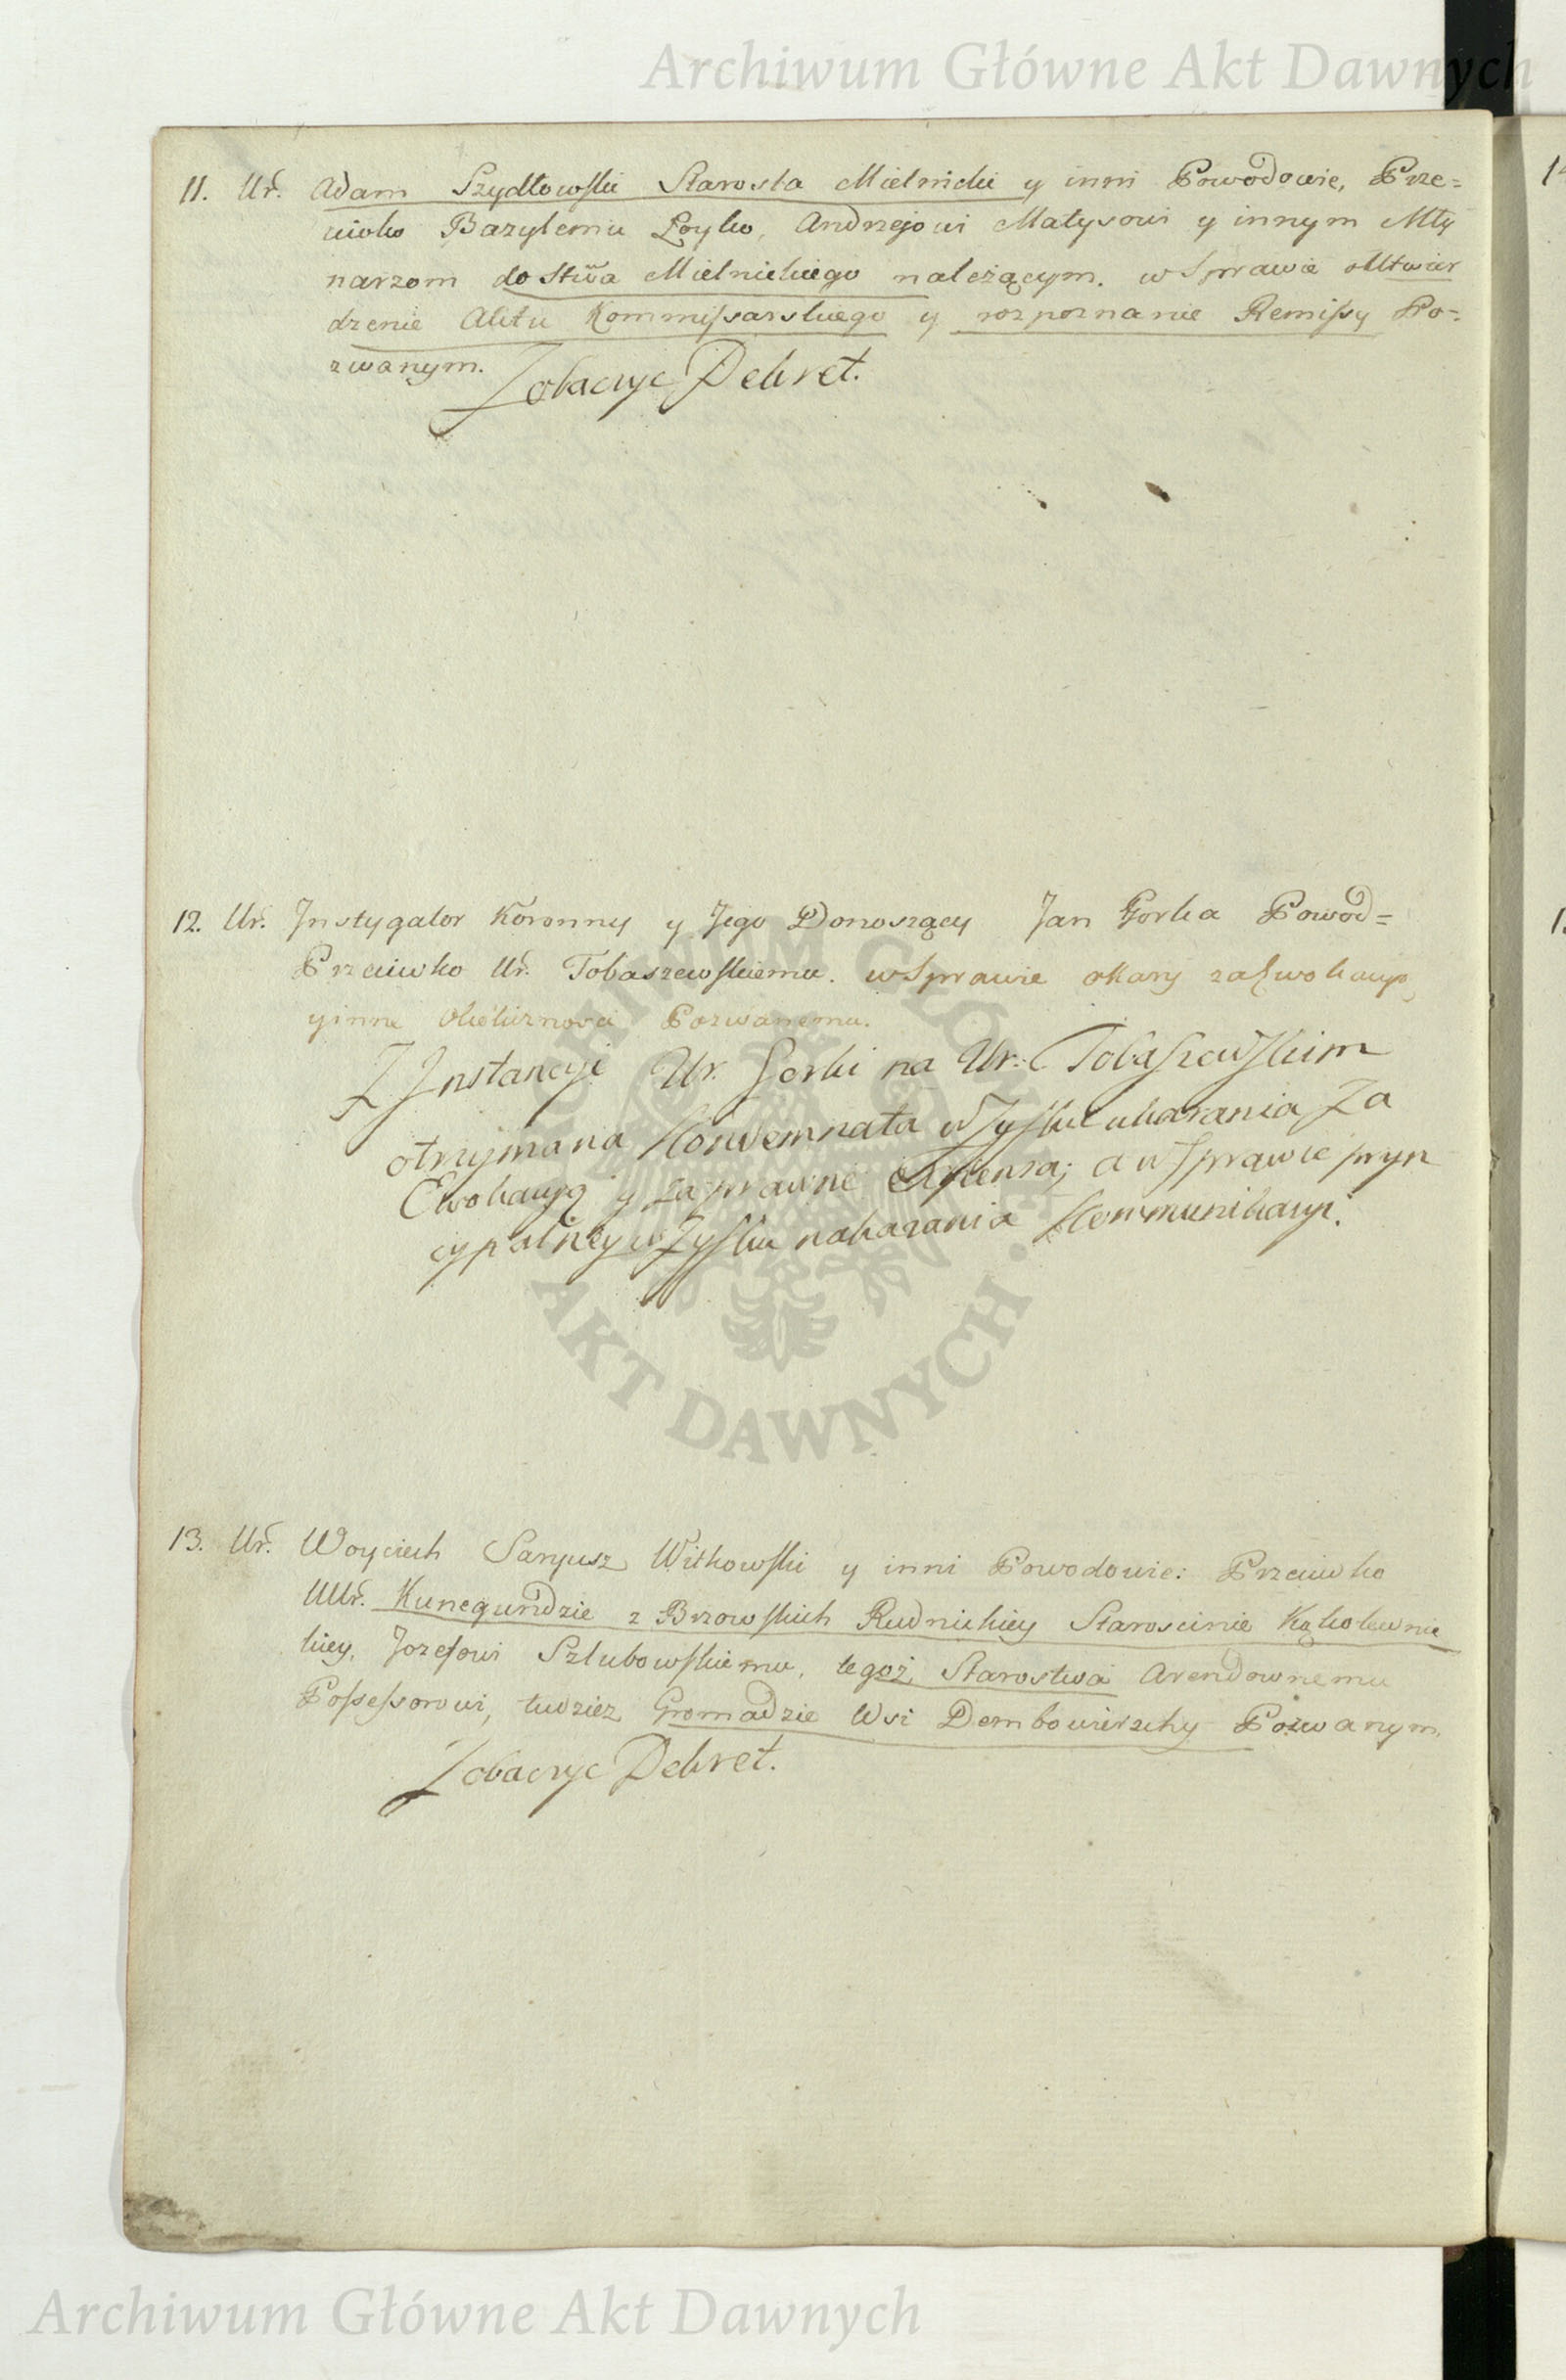 Archiwum Główne Akt Dawnych
11. Ur. Adam Szydłowski Starosta Mielnicki y inni Powodowie, Prze=
ciwko Bazylemu Łoyko, Andrzejowi Matysowi y innym Mły
narzom do Stwa Mielnickiego należącym. w Sprawie o Utwier
dzenie Aktu Kommissarskiego y rozpoznanie Remissy Po=
zwanym.
Zobaczyc Dekret.
12. Ur. Instygator Koronny y Jego Donoszący Jan Gorka Powod=
Przeciwko Ur. Tobaszewskiemu. w Sprawie o Kary za Ewokacyą,
y inne Okoliczności Pozwanemu.
Z Instancyi Ur. Gorki na Ur. Tobaszewskim
otrzymana Kondemnata w Zysku ukarania za
Ewokacyą y za prawne Expensa; a w Sprawie pryn
cypalney w Zysku nakazania Kommunikacyi.
13. Ur. Woyciech Saryusz Witkowski y inni Powodowie: Przeciwko
UUr. Kunegundzie z Brzowskich Rudnickiey Starościnie Kąkolewnic
kiey, Jozefowi Szlubowskiemu, tegoż Starostwa Arendownemu
Possessorowi, tudziez Gromadzie Wsi Dembowierzchy Pozwanym.
Zobaczyc Dekret.
ARCHIWUM GŁÓWNE AKT DAWNYCH
Archiwum Główne Akt Dawnych